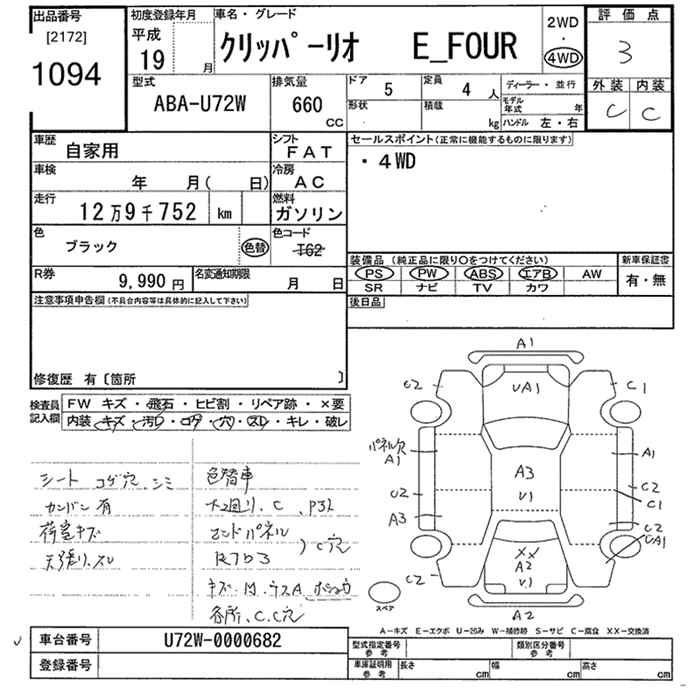 出品番号
[2172]
1094
初度登録年月
平成
19 月
車名・グレード
クリッパーリオ E_FOUR
2WD
・
4WD
評価点
3
外装 内装
C C
型式
ABA-U72W
排気量
660
CC
ドア
5
定員
4 人
形状
積載
kg
ディーラー・並行
モデル年式 年
ハンドル 左・右
車歴
自家用
シフト
FAT
車検
年 月( 日)
冷房
AC
走行
12万9千752 km
燃料
ガソリン
色
ブラック
色替
色コード
T62
R券
9,990円
名変通知期限
月 日
セールスポイント(正常に機能するものに限ります)
・4WD
装備品(純正品に限り〇をつけてください)
PS PW ABS エアB AW
SR ナビ TV カワ
新車保証書
有・無
後日品
注意事項申告欄(不具合内容等は具体的に記入して下さい)
修復歴 有〔箇所 〕
検査員記入欄
FW キズ・飛石・ヒビ割・リペア跡・×要
内装・キズ・汚レ・コゲ・穴・スレ・キレ・破レ
シート コゲ穴、シミ
カンバン有
荷室キズ
天張り、スレ
色替車
大2回り、C、P3ﾐ
エンドパネル
C穴
キズ・凹、ウスA
各所、C、C穴
A1
C2
UA1
C1
パネル穴
A1
A1
A3
V1
U2
C2
C1
A3
C2
UA1
XX
A2
V1
C2
A2
スペア
A-キズ E-エクボ U-凹み W-補修跡 S-サビ C-腐食 XX-交換済
車台番号
U72W-0000682
登録番号
型式指定番号
参考
類別区分番号
参考
車庫証明用
参考
長さ cm
幅 cm
高さ cm